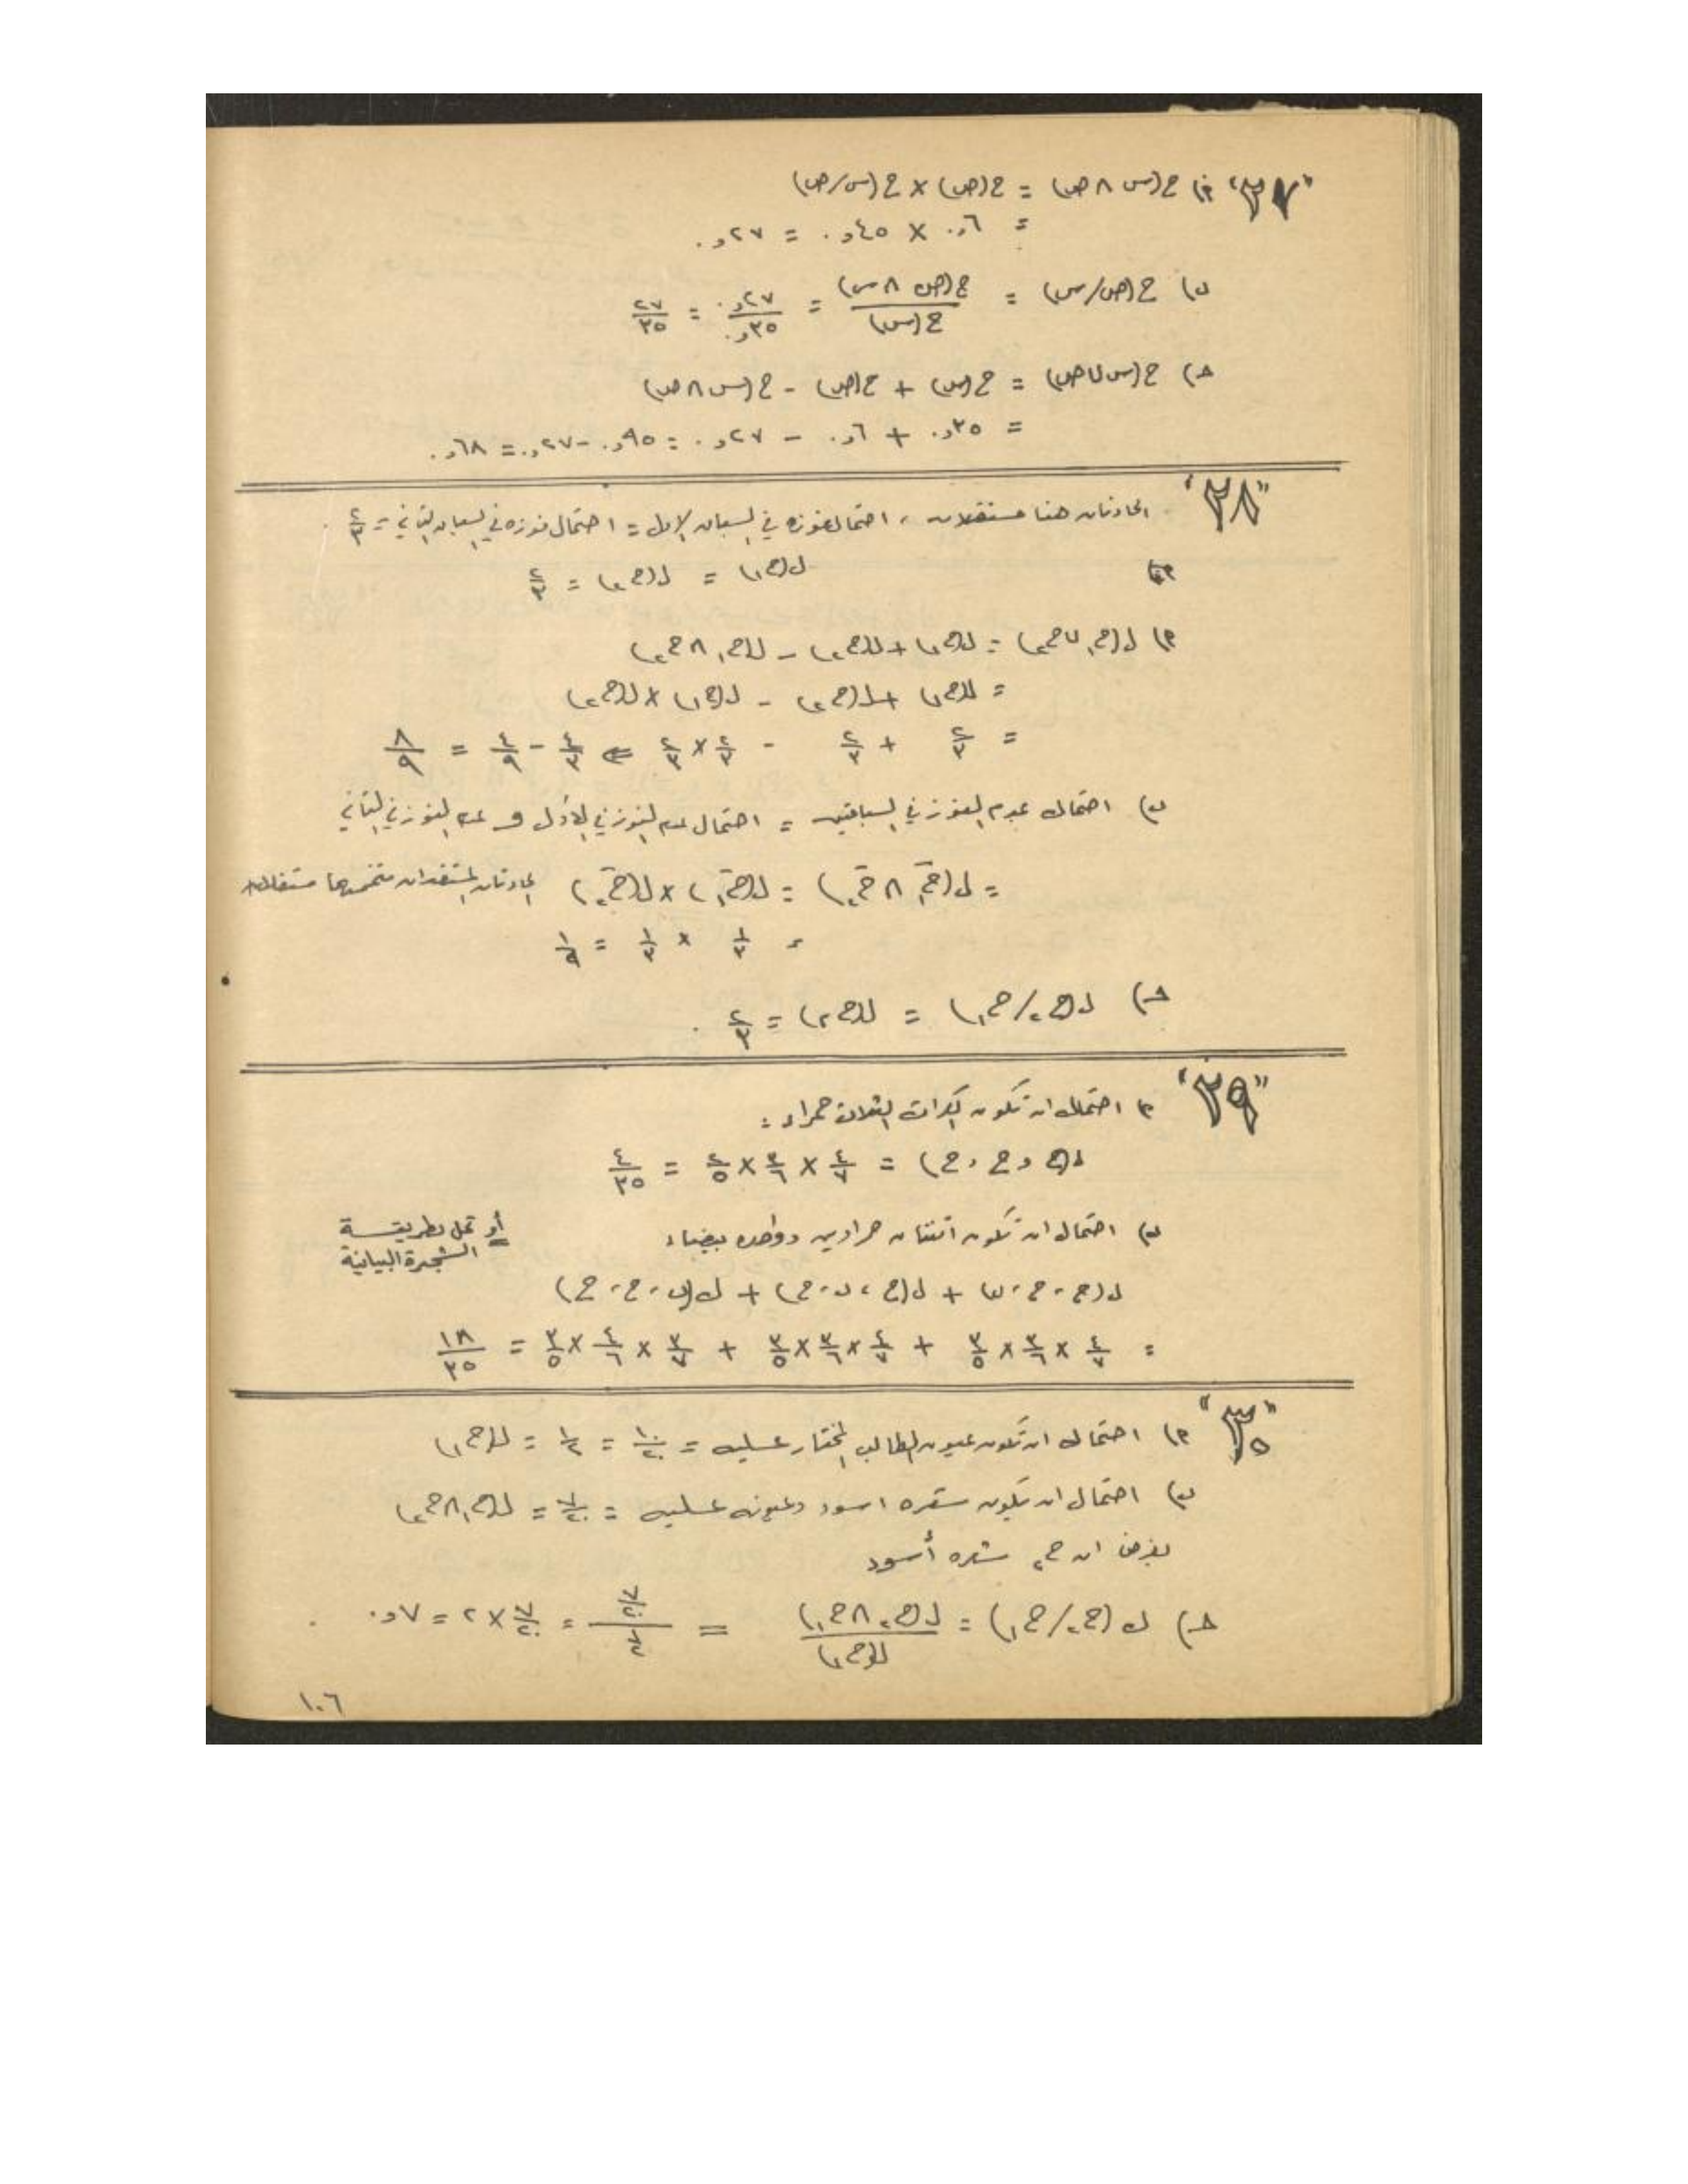 "٢٧" أ) ح(س ∩ ص) = ح(ص) × ح(س/ص)
= ٦و٠ × ٤٥و٠ = ٢٧و٠
ب) ح(ص/س) = ح(ص ∩ س) / ح(س) = ٢٧و٠ / ٣٥و٠ = ٢٧/٣٥
حـ) ح(س ∪ ص) = ح(س) + ح(ص) - ح(س ∩ ص)
= ٣٥و٠ + ٦و٠ - ٢٧و٠ = ٩٥و٠ - ٢٧و٠ = ٦٨و٠
"٢٨" الحادثتان هنا مستقلتان ، احتمال فوزه في السباق الاول = احتمال فوزه في السباق الثاني = ٢/٣
ل(ح١) = ل(ح٢) = ٢/٣
أ) ل(ح١ ∪ ح٢) = ل(ح١) + ل(ح٢) - ل(ح١ ∩ ح٢)
= ل(ح١) + ل(ح٢) - ل(ح١) × ل(ح٢)
= ٢/٣ + ٢/٣ - ٢/٣ × ٢/٣ ⇐ ٤/٣ - ٤/٩ = ٨/٩
ب) احتمال عدم الفوز في السباقين = احتمال عدم الفوز في الأول و عدم الفوز في الثاني
= ل(ح̄١ ∩ ح̄٢) = ل(ح̄١) × ل(ح̄٢) الحادثتان المستقلتان متممتهما مستقلتان
= ١/٣ × ١/٣ = ١/٩
حـ) ل(ح٢/ح١) = ل(ح٢) = ٢/٣
"٢٩" أ) احتمال ان تكون الكرات الثلاث حمراء :
ل(ح ، ح ، ح) = ٤/٧ × ٣/٦ × ٢/٥ = ٤/٣٥
ب) احتمال ان تكون اثنتان حراوين وواحده بيضاء
أو تحل بطريقة
الشجرة البيانية
ل(ح ، ح ، ب) + ل(ح ، ب ، ح) + ل(ب ، ح ، ح)
= ٤/٧ × ٣/٦ × ٣/٥ + ٤/٧ × ٣/٦ × ٣/٥ + ٣/٧ × ٤/٦ × ٣/٥ = ١٨/٣٥
"٣٠" أ) احتمال ان تكون عيون الطالب المختار عسليه = ١٠/٢٠ = ١/٢ = ل(ح١)
ب) احتمال ان يكون شعره اسود وعيونه عسليه = ٧/٢٠ = ل(ح١ ∩ ح٢)
بفرض ان ح٢ شعره أسود
حـ) ل(ح٢/ح١) = ل(ح٢ ∩ ح١) / ل(ح١) = ٧/٢٠ / ١/٢ = ٧/٢٠ × ٢ = ٧و٠
١٠٦